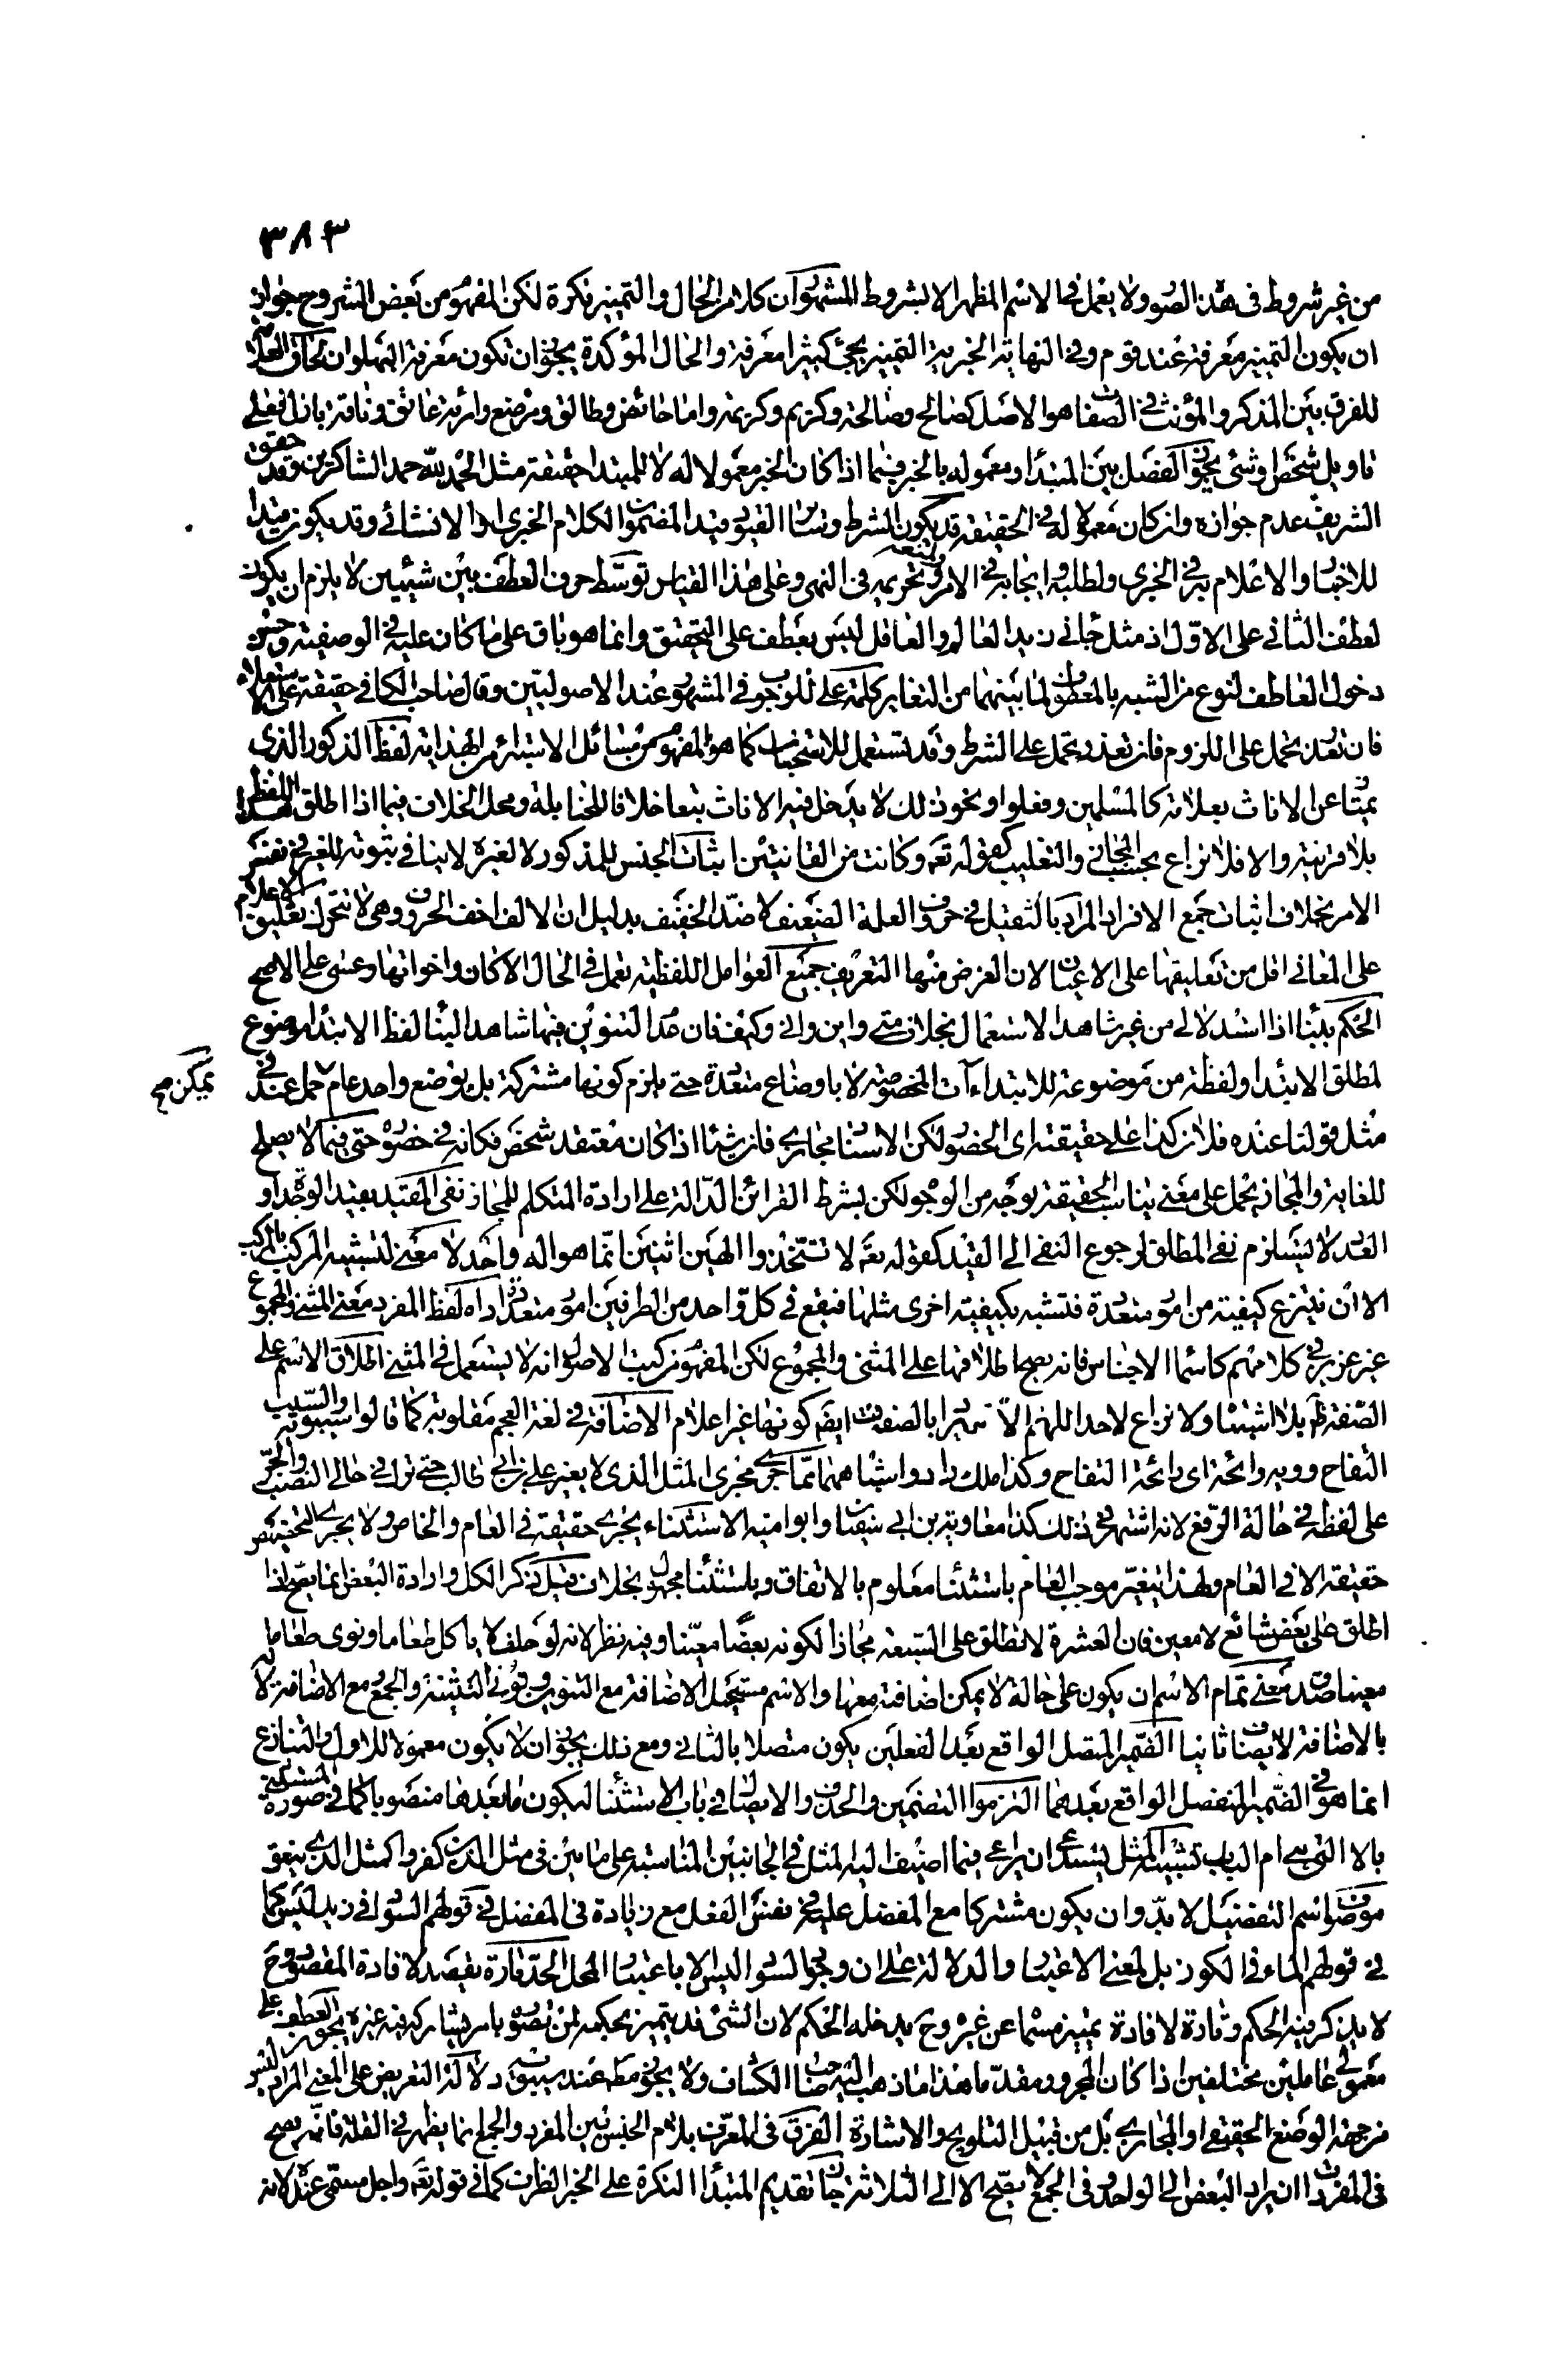 ٣٨٣
من غير شروط فى هذه الصور ولا يعمل فى الاسم المظهر الا بشروط المشهور ان كلا من الحال والتمييز نكرة لكن المفهوم من بعض الشروح جواز
ان يكون التمييز معرفة عند قوم وفى النهاية الجزرية التمييز يجئ كثيرا معرفة والحال المؤكدة يجوز ان تكون معرفة الحاق العلامة
للفرق بين المذكر والمؤنث فى الصفات هو الاصل كصالح وصالحة وكريم وكريمة واما حائض وطالق ومرضع وامرأة عاشق وناقة بازل فعلى
تاويل شخص او شئ يجوز الفصل بين المبتدأ ومعموله بالخبر فيما اذا كان الخبر معمولا له لا للمبتدا حقيقة مثل الحمد لله حمد الشاكرين وقد حقق
الشريف عدم جوازه وان كان معمولا له فى الحقيقة قد يكون الشرط وسائر القيود قيدا لمضمون الكلام الخبرى او الانشائى وقد يكون قيدا
للاخبار والاعلام به فى الخبرى ولطلبه وايجابه فى الامر ومنعه وتحريمه فى النهى وعلى هذا القياس توسط حرف العطف بين شيئين لا يلزم ان يكون
لعطف الثانى على الاول اذ مثل جاءنى زيد العالم والعاقل ليس بعطف على التحقيق وانما هو باق على ما كان عليه فى الوصفية وحسن
دخول العاطف لنوع من الشبه بالمعطوف لما بينهما من التغاير كلمة على للوجوب فى المشهور عند الاصوليين وقال صاحب الكافى حقيقة على الاستعلاء
فان تعذر يحمل على اللزوم فان تعذر يحمل على الشرط وقد تستعمل للاستحباب كما هو المفهوم من مسائل الاستبراء من الهداية لفظ الذكور الذى
يمتاز عن الاناث بعلامة كالمسلمين وفعلوا ونحو ذلك لا يدخل فيه الاناث تبعا خلافا للحنابلة ومحل الخلاف فيما اذا اطلق هذا اللفظ
بلا قرينة والا فلا نزاع بحسب المجاز والتغليب كقوله تعـ وكانت من القانتين اثبات الجنس للمذكور لا لغيره لا ينافى ثبوته للغير فى نفس
الامر بخلاف اثبات جميع الافراد المراد بالثقيل فى حروف العلة الضعيف لا ضد الخفيف بدليل ان الالف اخف الحروف وهى لا تتحرك تعليق الاعلام
على المعانى اقل من تعليقها على الاعيان لان الغرض منها التعريف جميع العوامل اللفظية تعمل فى الحال الا كان واخواتها وعسى على الاصح
الحكم ببناء اذا استدلالى من غير شاهد الاستعمال بخلاف متى واين وانى وكيف فان عدم التنوين فيها شاهد البناء لفظ الابتداء موضوع
لمطلق الابتداء ولفظة من موضوعة للابتداءآت المخصوصة لا باوضاع متعددة حتى يلزم كونها مشتركة بل بوضع واحد عام حمل عند فى
يمكن صح
مثل قولنا عنده فلان كذا على حقيقته اى الحضور لكن الاسناد مجازى فان شيئا اذا كان معتقد شخص فكانه فى حضوره حتى فيما لا يصلح
للغاية والمجاز يحمل على معنى يناسب الحقيقة بوجه من الوجوه لكن بشرط القرائن الدالة على ارادة المتكلم للمجاز نفى المقيد بقيد الوحدة او
العدد لا يستلزم نفى المطلق لرجوع النفى الى القيد كقوله تعـ لا تتخذوا الهين اثنين انما هو اله واحد لا معنى لتشبيه المركب بالمركب
الا ان ينتزع كيفية من امور متعددة فتشبه بكيفية اخرى مثلها فيقع فى كل واحد من الطرفين امور متعددة اراد لفظ المفرد معنى المثنى والمجموع
غير عزيز فى كلامهم كاسماء الاجناس فانه يصح اطلاقها على المثنى والمجموع لكن المفهوم من كتب الاصول انه لا يستعمل فى المثنى اطلاق الاسم على
الصفة ظـ بلا اشتباه ولا نزاع لاحد اللهم الا بالصفات ايضـ كونها غير اعلام الاضافة فى لغة العجم مقلوبة كما قالوا سيبويه والسيب
التفاح وويه رائحة اى رائحة التفاح وكذا ملك داد واشباههما مما جرى مجرى المثل الذى لا يغير على بن ابى طالب حتى ترك فى حالى النصب والجر
على لفظه فى حالة الرفع لانه اشتهر فى ذلك كذا معاوية بن ابى سفيان وابو امية الاستثناء يجرى حقيقة فى العام والخاص ولا يجرى التخصيص
حقيقة الا فى العام ولهذا يتغير موجب العام باستثناء معلوم بالاتفاق وباستثناء مجهول بخلاف قبيل ذكر الكل وارادة البعض انما يصح اذا
اطلق على بعض شائع لا معين فان العشرة لا تطلق على السبعة مجازا لكونه بعضا معينا وفيه نظر لانه لو حلف لا ياكل طعاما ونوى طعاما
معينا صدق معنى تمام الاسم ان يكون على حالة لا يمكن اضافته معها والاسم مستحيل الاضافة مع التنوين ونونى التثنية والجمع ومع الاضافة لانه
بالاضافة لا يضاف ثانيا الضمير المتصل الواقع بعد الفعلين يكون متصلا بالثانى ومع ذلك يجوز ان لا يكون معمولا للاول والتنازع
انما هو فى الضمير المنفصل الواقع بعدهما التزموا التضمين والحذف والايصال فى باب الاستثناء ليكون ما بعدها منصوبا كما فى صورة المستثنى
بالا التى هى ام الباب تشبيه المثل يستدعى ان يراعى فيما اضيف اليه المثل فى الجانبين المناسبة على ما بين فى مثل الذين كفروا كمثل الذى ينعق
موصوف اسم التفضيل لا بد وان يكون مشتركا مع المفضل عليه فى نفس الفعل مع زيادة فى المفضل فى قولهم السواد فى زيد ليس كما
فى قولهم الماء فى الكوز بل لمعنى الاعتبار والدلالة على ان وجود السواد ليس الا باعتبار المحل الحد تارة يقصد لافادة المقصود وحـ
لا يذكر فيه الحكم وتارة لافادة تمييز مسماه عن غيره وحـ يدخله الحكم لان الشئ قد يتميز بحكمه لمن تصوره بامر يشاركه فيه غيره يجوز العطف على
معمولى عاملين مختلفين اذا كان المجرور مقدما هذا ما ذهب اليه صاحب الكشاف ولا يجوز مطـ عند سيبويه دلالة التعريض على المعنى المراد ليس
من جهة الوضع الحقيقى او المجازى بل من قبيل التلويح والاشارة الفرق فى المعرف بلام الجنس بين المفرد والجمع انما يظهر فى القلة فانه يصح
فى المفرد ان يراد البعض الى الواحد وفى الجمع لا يصح الا الى الثلاثة جاز تقديم المبتدأ النكرة على الخبر الظرف كما فى قوله تعـ واجل مسمى عنده لانه